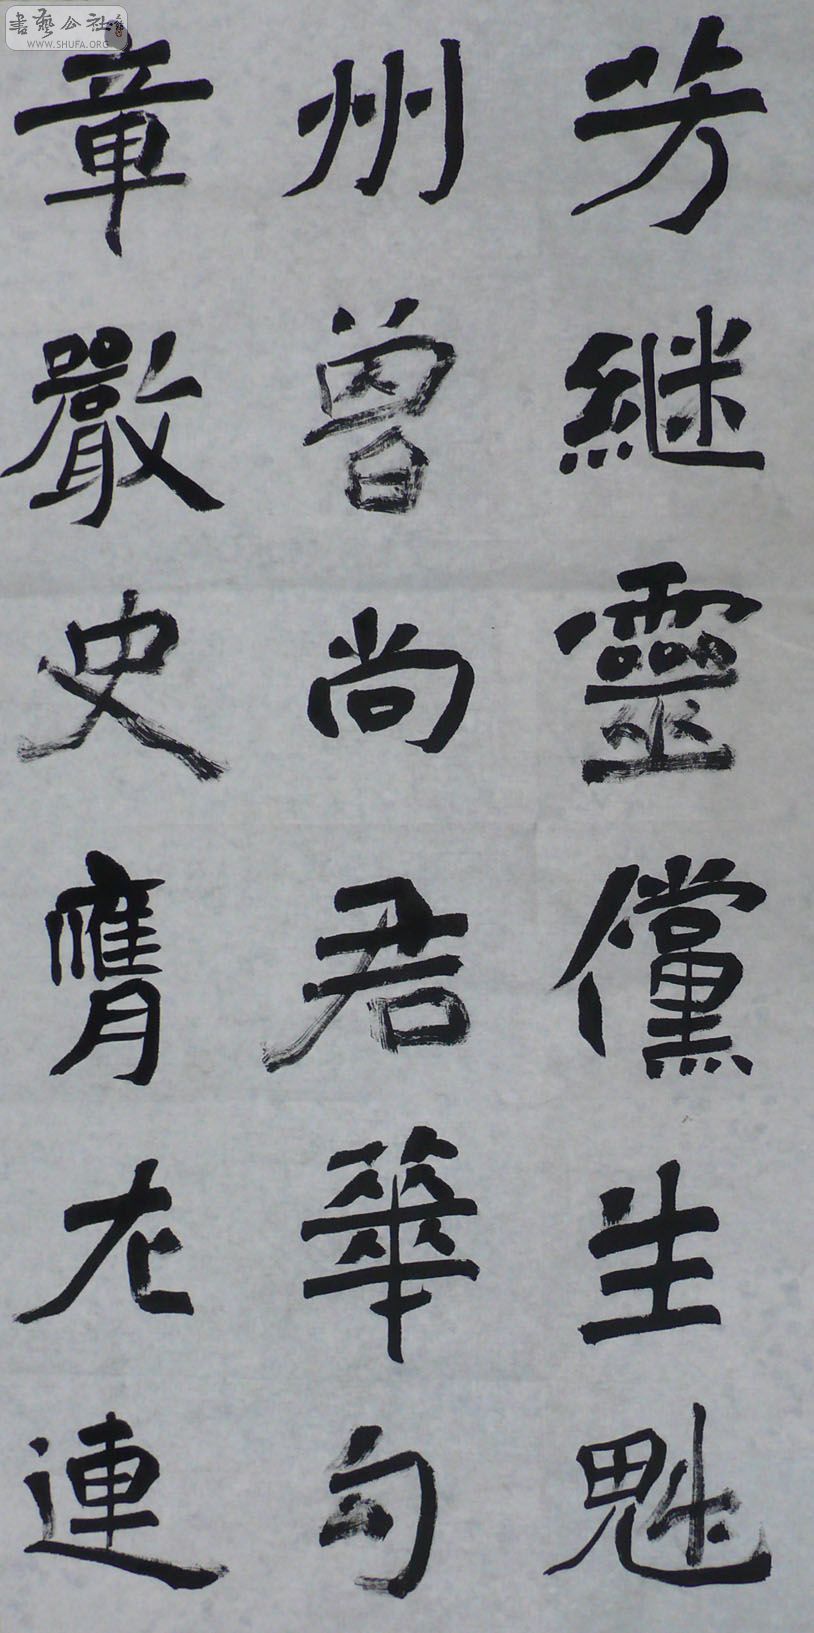 芳繼靈儻生魁
州曾尚君華句
章嚴史膺左連
書藝公社
WWW.SHUFA.ORG